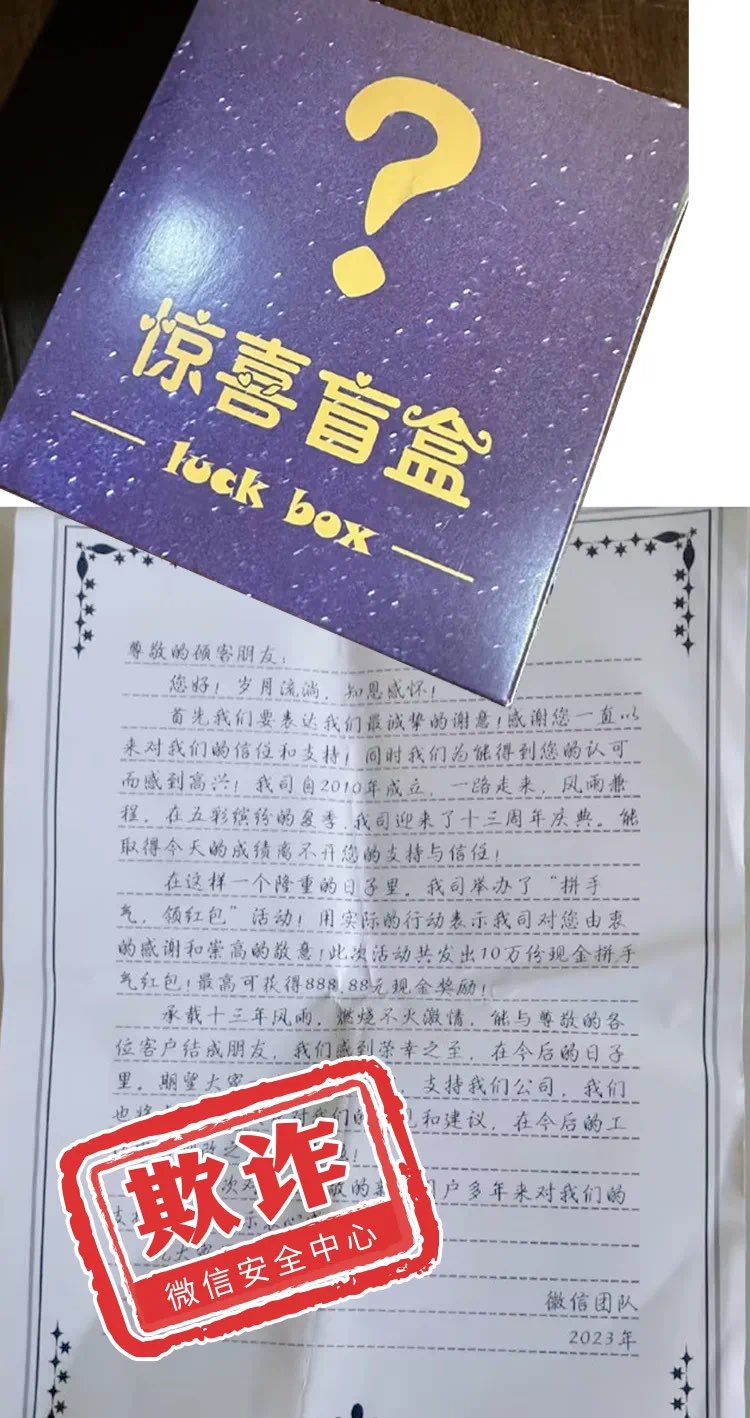 ?
惊喜盲盒
luck box
尊敬的顾客朋友:
您好!岁月流淌,知恩感怀!
首先我们要表达我们最诚挚的谢意!感谢您一直以
来对我们的信任和支持!同时我们为能得到您的认可
而感到高兴!我司自2010年成立,一路走来,风雨兼
程,在五彩缤纷的夏季,我司迎来了十三周年庆典。能
取得今天的成绩离不开您的支持与信任!
在这样一个隆重的日子里,我司举办了“拼手
气,领红包”活动!用实际的行动表示我司对您由衷
的感谢和崇高的敬意!此次活动共发出10万份现金拼手
气红包!最高可获得888.88元现金奖励!
承载十三年风雨,燃烧不灭激情,能与尊敬的各
位客户结成朋友,我们感到荣幸之至,在今后的日子
里,期望大家 支持我们公司,我们
也将 对我们的 见和建议,在今后的工
次对 敬的 户多年来对我们的
欺诈
微信安全中心
微信团队
2023年